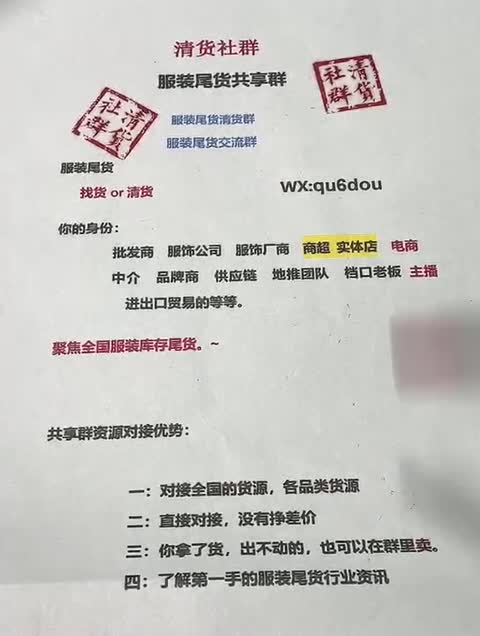 清货社群
服装尾货共享群
清货
社群
清货
社群
服装尾货清货群
服装尾货交流群
服装尾货
找货 or 清货
WX:qu6dou
你的身份：
批发商 服饰公司 服饰厂商 商超 实体店 电商
中介 品牌商 供应链 地推团队 档口老板 主播
进出口贸易的等等。
聚焦全国服装库存尾货。~
共享群资源对接优势：
一：对接全国的货源，各品类货源
二：直接对接，没有挣差价
三：你拿了货，出不动的，也可以在群里卖。
四：了解第一手的服装尾货行业资讯